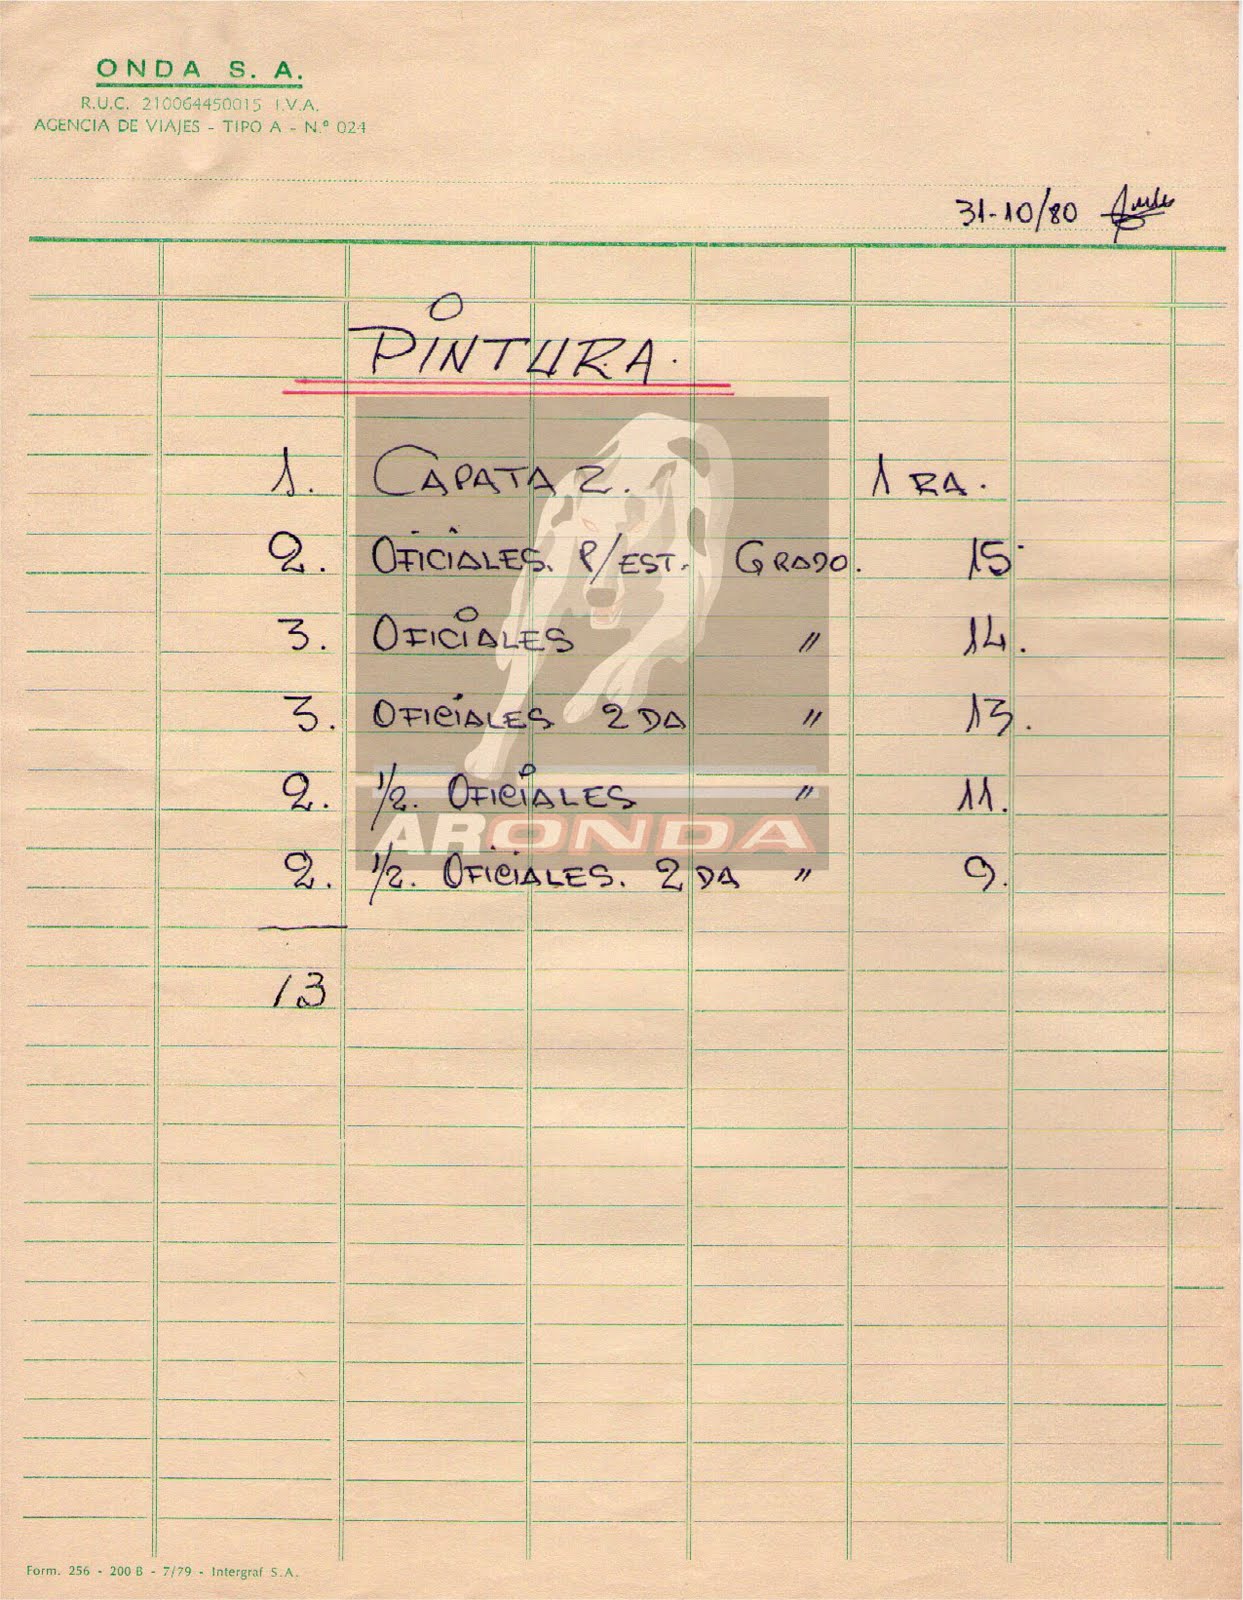 ONDA S. A.
R.U.C. 210064450015 I.V.A.
AGENCIA DE VIAJES - TIPO A - N.º 024
31-10/80
PINTURA.
1. CAPATAZ. 1 RA.
2. OFICIALES. P/EST. GRADO. 15
3. OFICIALES " 14.
3. OFICIALES 2 DA " 13.
2. 1/2. OFICIALES " 11.
ARONDA
2. 1/2. OFICIALES. 2 DA " 9.
13
Form. 256 - 200 B - 7/79 - Intergraf S.A.